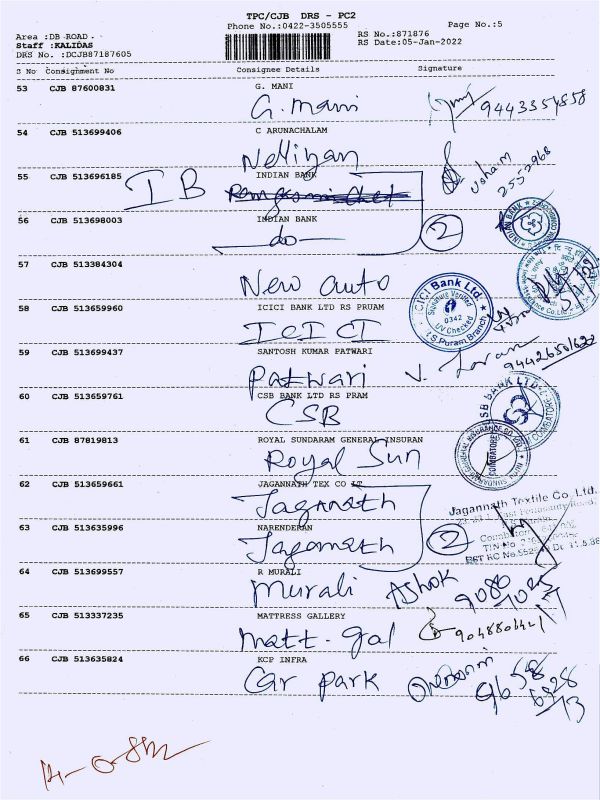 TPC/CJB DRS - PC2
Phone No.:0422-3505555
Page No.:5
Area :DB ROAD.
RS No.:871876
Staff :KALIDAS
RS Date:05-Jan-2022
DRS No. :DCJB87187605
S No Consignment No Consignee Details Signature
53 CJB 87600831 G. MANI
G. Mani 9443354858
54 CJB 513699406 C ARUNACHALAM
Nelliyan
Usha M
2552968
55 CJB 513696185 INDIAN BANK
IB
56 CJB 513698003 INDIAN BANK
do
2
INDIAN BANK
57 CJB 513384304
New auto
58 CJB 513659960 ICICI BANK LTD RS PRUAM
ICICI
ICICI Bank Ltd.
Signature Verified
0342
UV Checked
R S Puram Branch
59 CJB 513699437 SANTOSH KUMAR PATWARI
Patwari
60 CJB 513659761 CSB BANK LTD RS PRAM
CSB
CSB BANK LTD
COIMBATORE
61 CJB 87819813 ROYAL SUNDARAM GENERAL INSURAN
Royal Sun
COIMBATORE
62 CJB 513659661 JAGANNATH TEX CO LT
Jagannath
Jagannath Textile Co. Ltd.
63 CJB 513635996 NARENDERAN
Jagannath
2
64 CJB 513699557 R MURALI
Murali Ashok
9080
65 CJB 513337235 MATTRESS GALLERY
Matt. gal
66 CJB 513635824 KCP INFRA
Car park
9658
6828
13